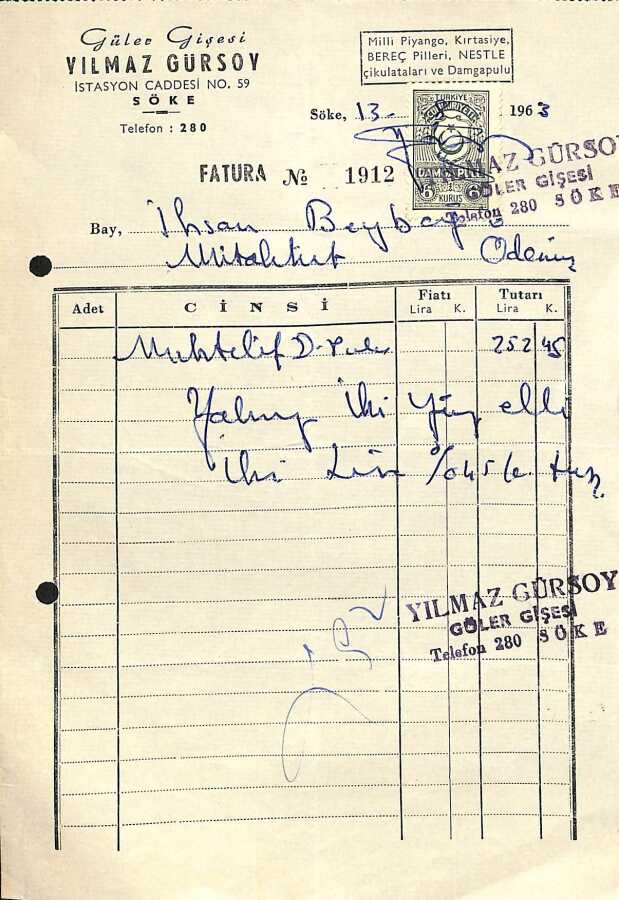 Güler Gişesi
YILMAZ GÜRSOY
İSTASYON CADDESİ NO. 59
SÖKE
Telefon : 280
Milli Piyango, Kırtasiye,
BEREÇ Pilleri, NESTLE
çikulataları ve Damgapulu
Söke, 13- 1963
TÜRKİYE CUMHURİYETİ
DAMGA PULU
6 KURUŞ 6
YILMAZ GÜRSOY
GÜLER GİŞESİ
Telefon 280 SÖKE
FATURA № 1912
Bay, İhsan Beybaş
Ödemiş
Adet CİNSİ Fiatı Lira K. Tutarı Lira K.
Muhtelif D. 252 45
Yalnız iki yüz elli
iki Lira %45 k. tur.
YILMAZ GÜRSOY
GÜLER GİŞESİ
Telefon 280 SÖKE